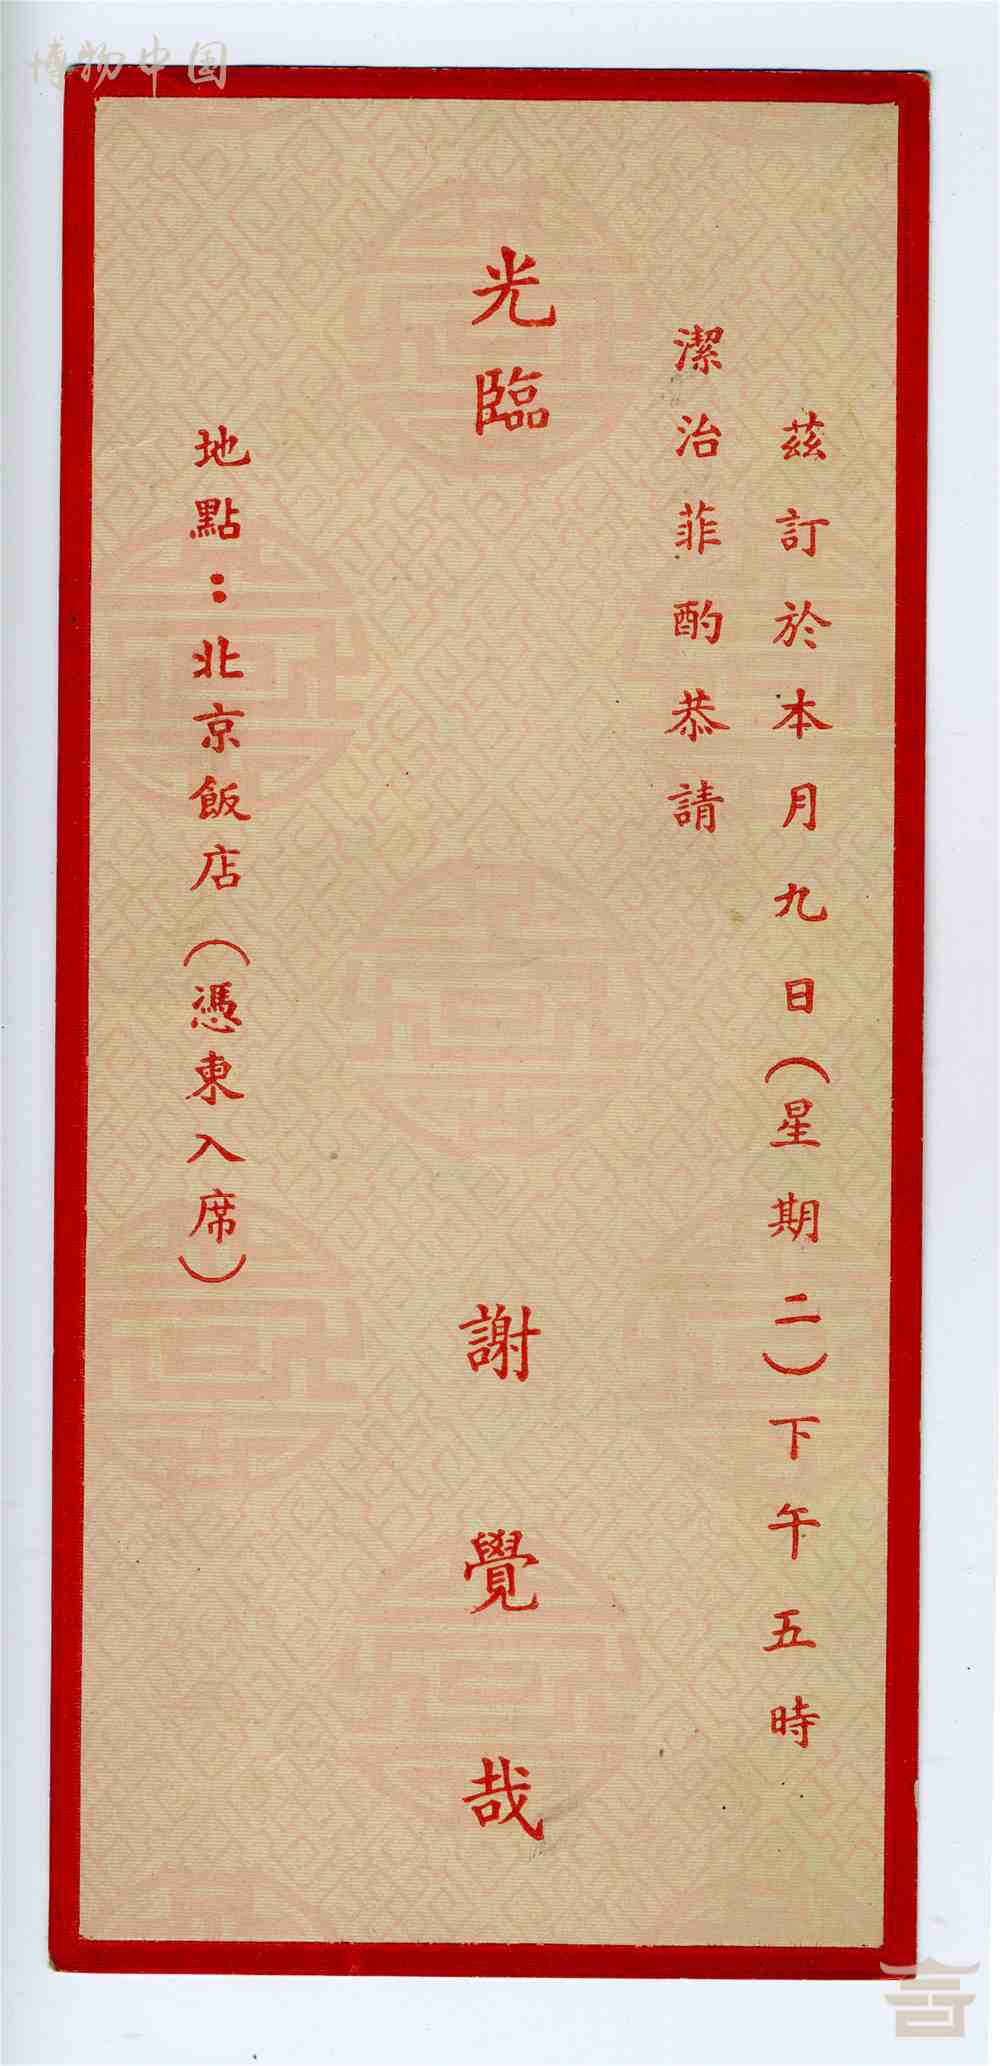 博物中国
茲訂於本月九日(星期二)下午五時
潔治菲酌恭請
光臨
謝覺哉
地點：北京飯店(憑柬入席)